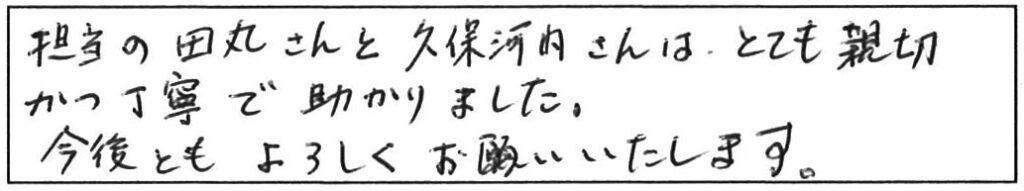 担当の田丸さんと久保河内さんは、とても親切
かつ丁寧で助かりました。
今後ともよろしくお願いいたします。